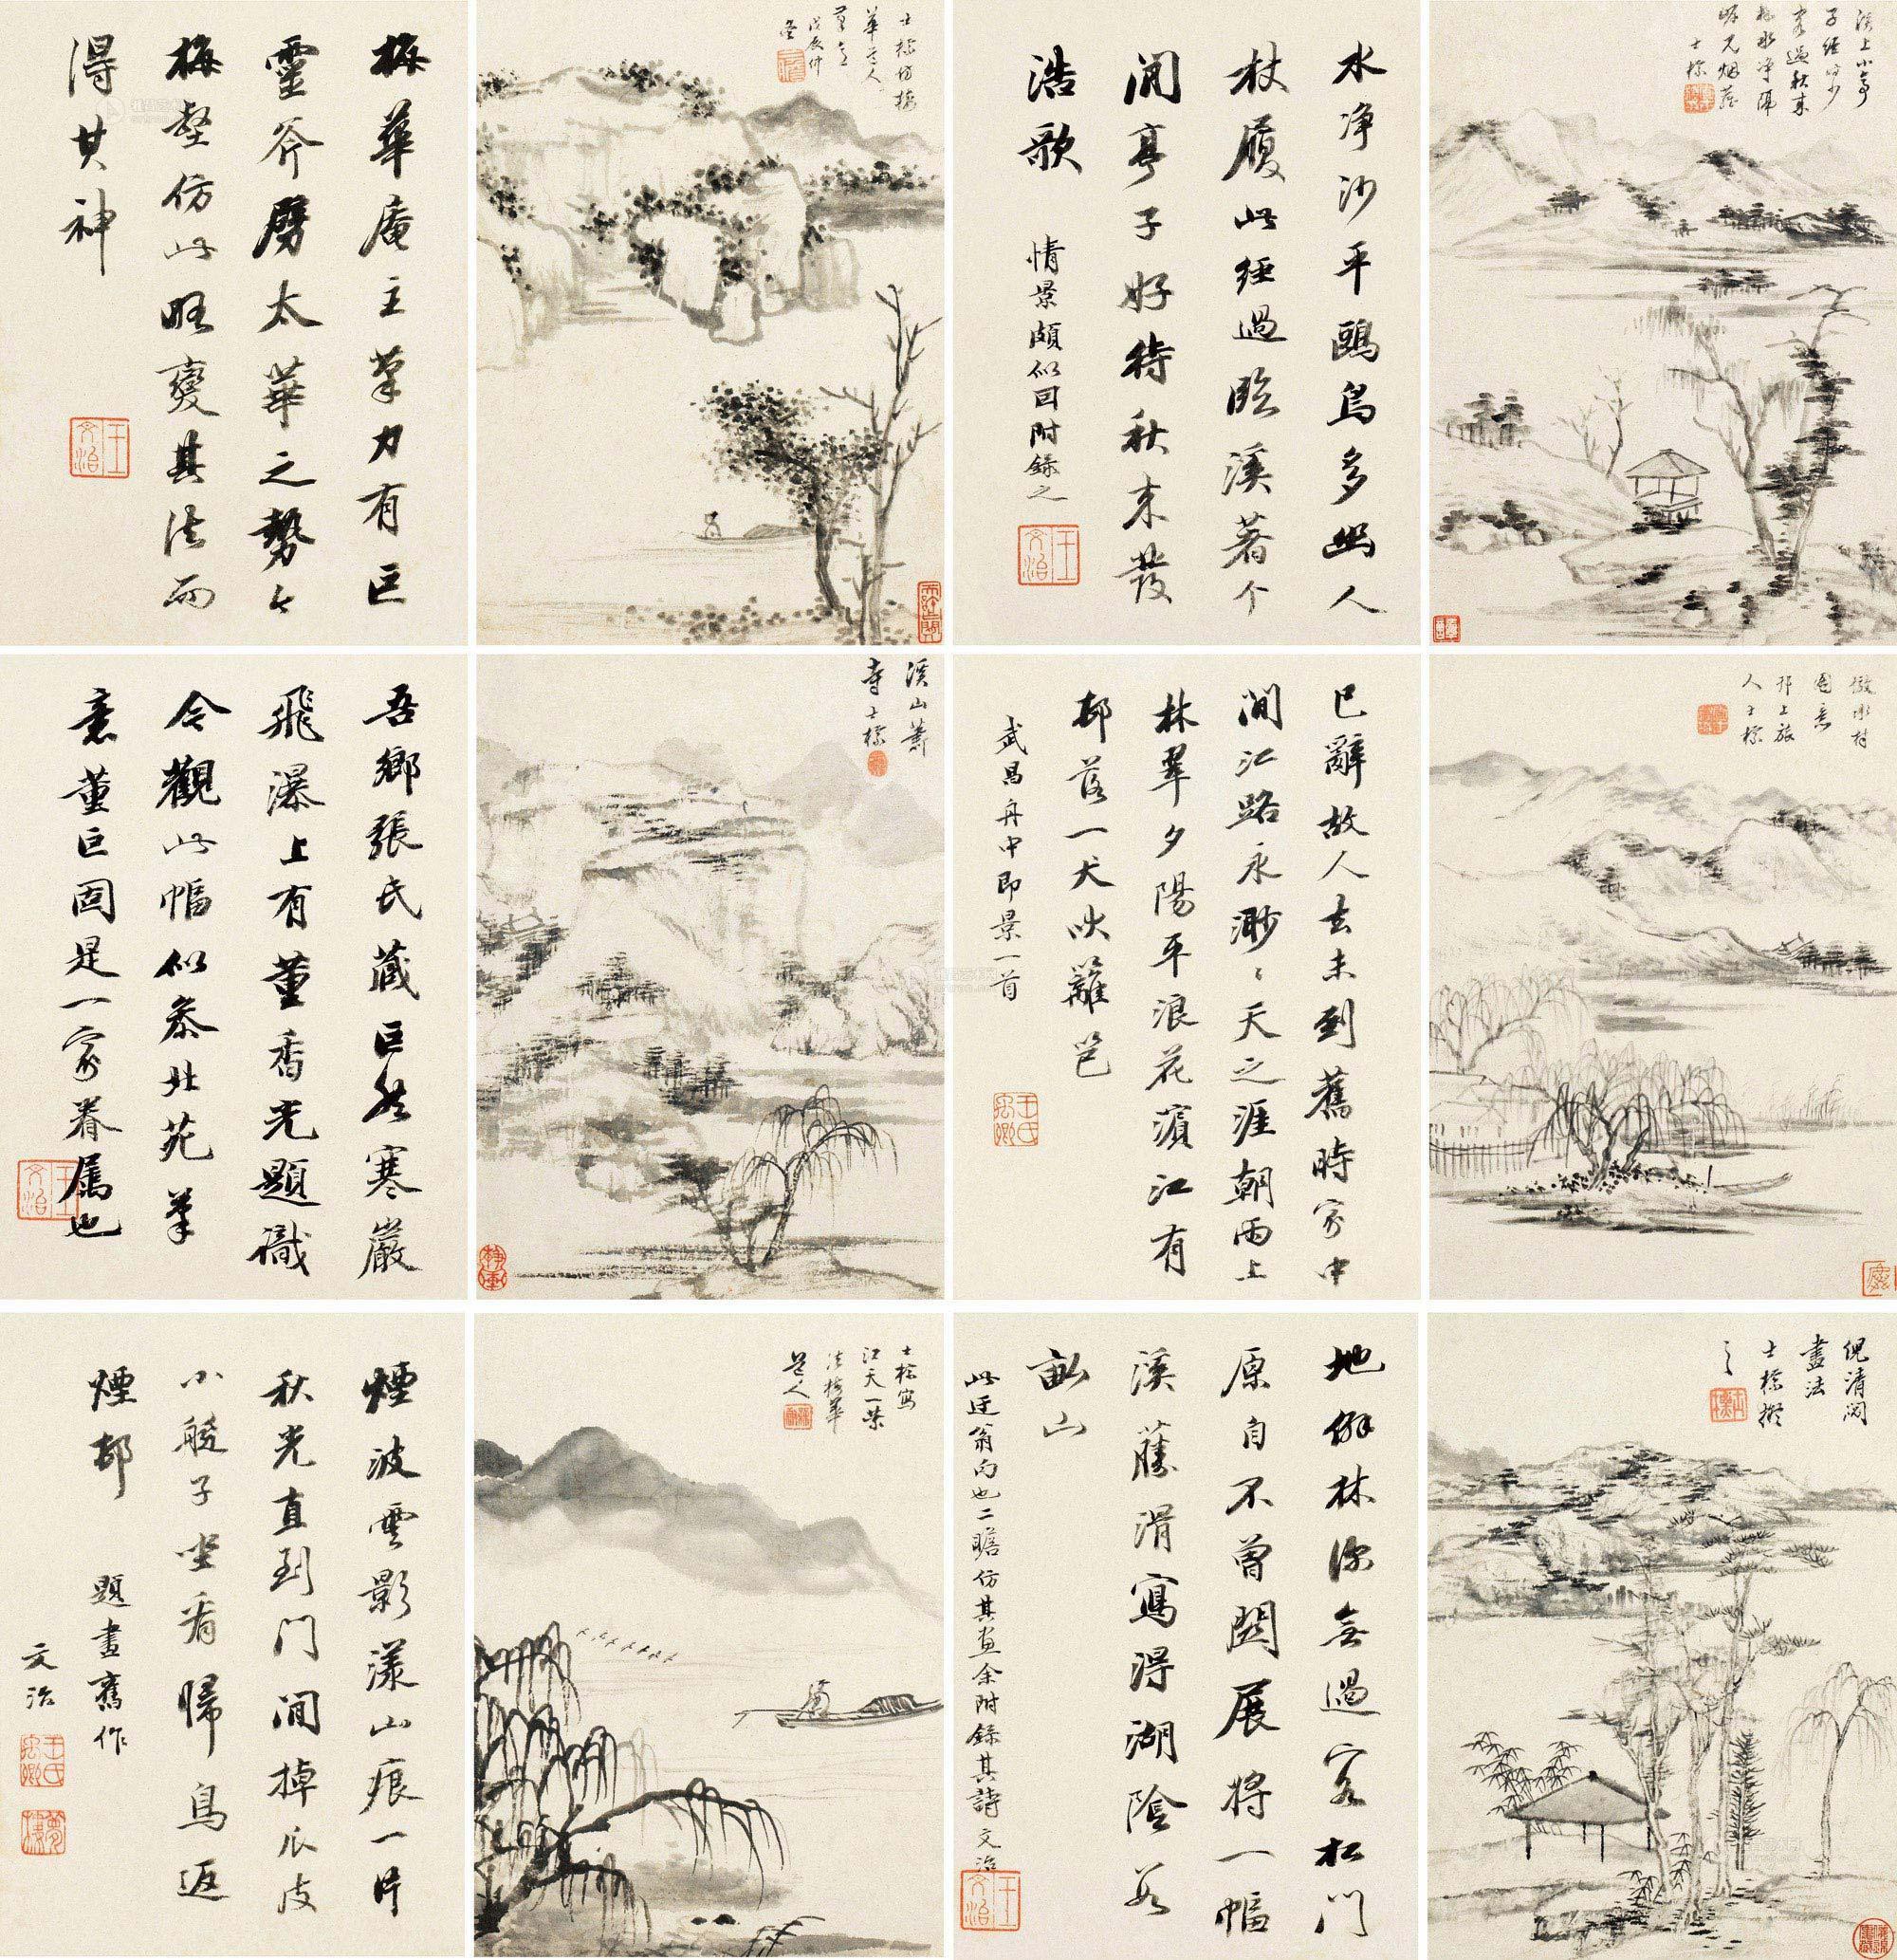 溪上小亭
士標
水净沙平鷗鳥多幽人
杖履此經過臨溪著个
閒亭子好待秋来發
浩歌
情景頗似因附錄之
王文治
士標仿梅
華道人
筆意
戊辰仲
冬
梅華庵主筆力有巨
靈斧劈太華之勢今
梅壑仿此略變其法而
得其神
王文治
倣水村
圖意
邗上旅
人士標
已辭故人去未到舊時家中
間江路永渺〻天之涯朝雨上
林翠夕陽平浪花濱江有
邨落一犬吠籬笆
武昌舟中即景一首
王氏禹卿
溪山蕭
寺士標
吾鄉張氏藏巨然寒巖
飛瀑上有董香光題識
今觀此幅似參北苑筆
意董巨固是一家眷屬也
王文治
倪清閟
畫法
士標擬
之
地僻林深無過客松門
原自不曾關展將一幅
溪藤滑寫得湖陰數
畝山
此迂翁句也二瞻仿其畫余附錄其詩文治
王文治
士標寫
江天一棹
法梅華
道人
煙波雲影漾山痕一片
秋光直到門閒掉瓜皮
小艇子坐看歸鳥返
煙邨
題畫舊作
文治
王氏禹卿
夢樓